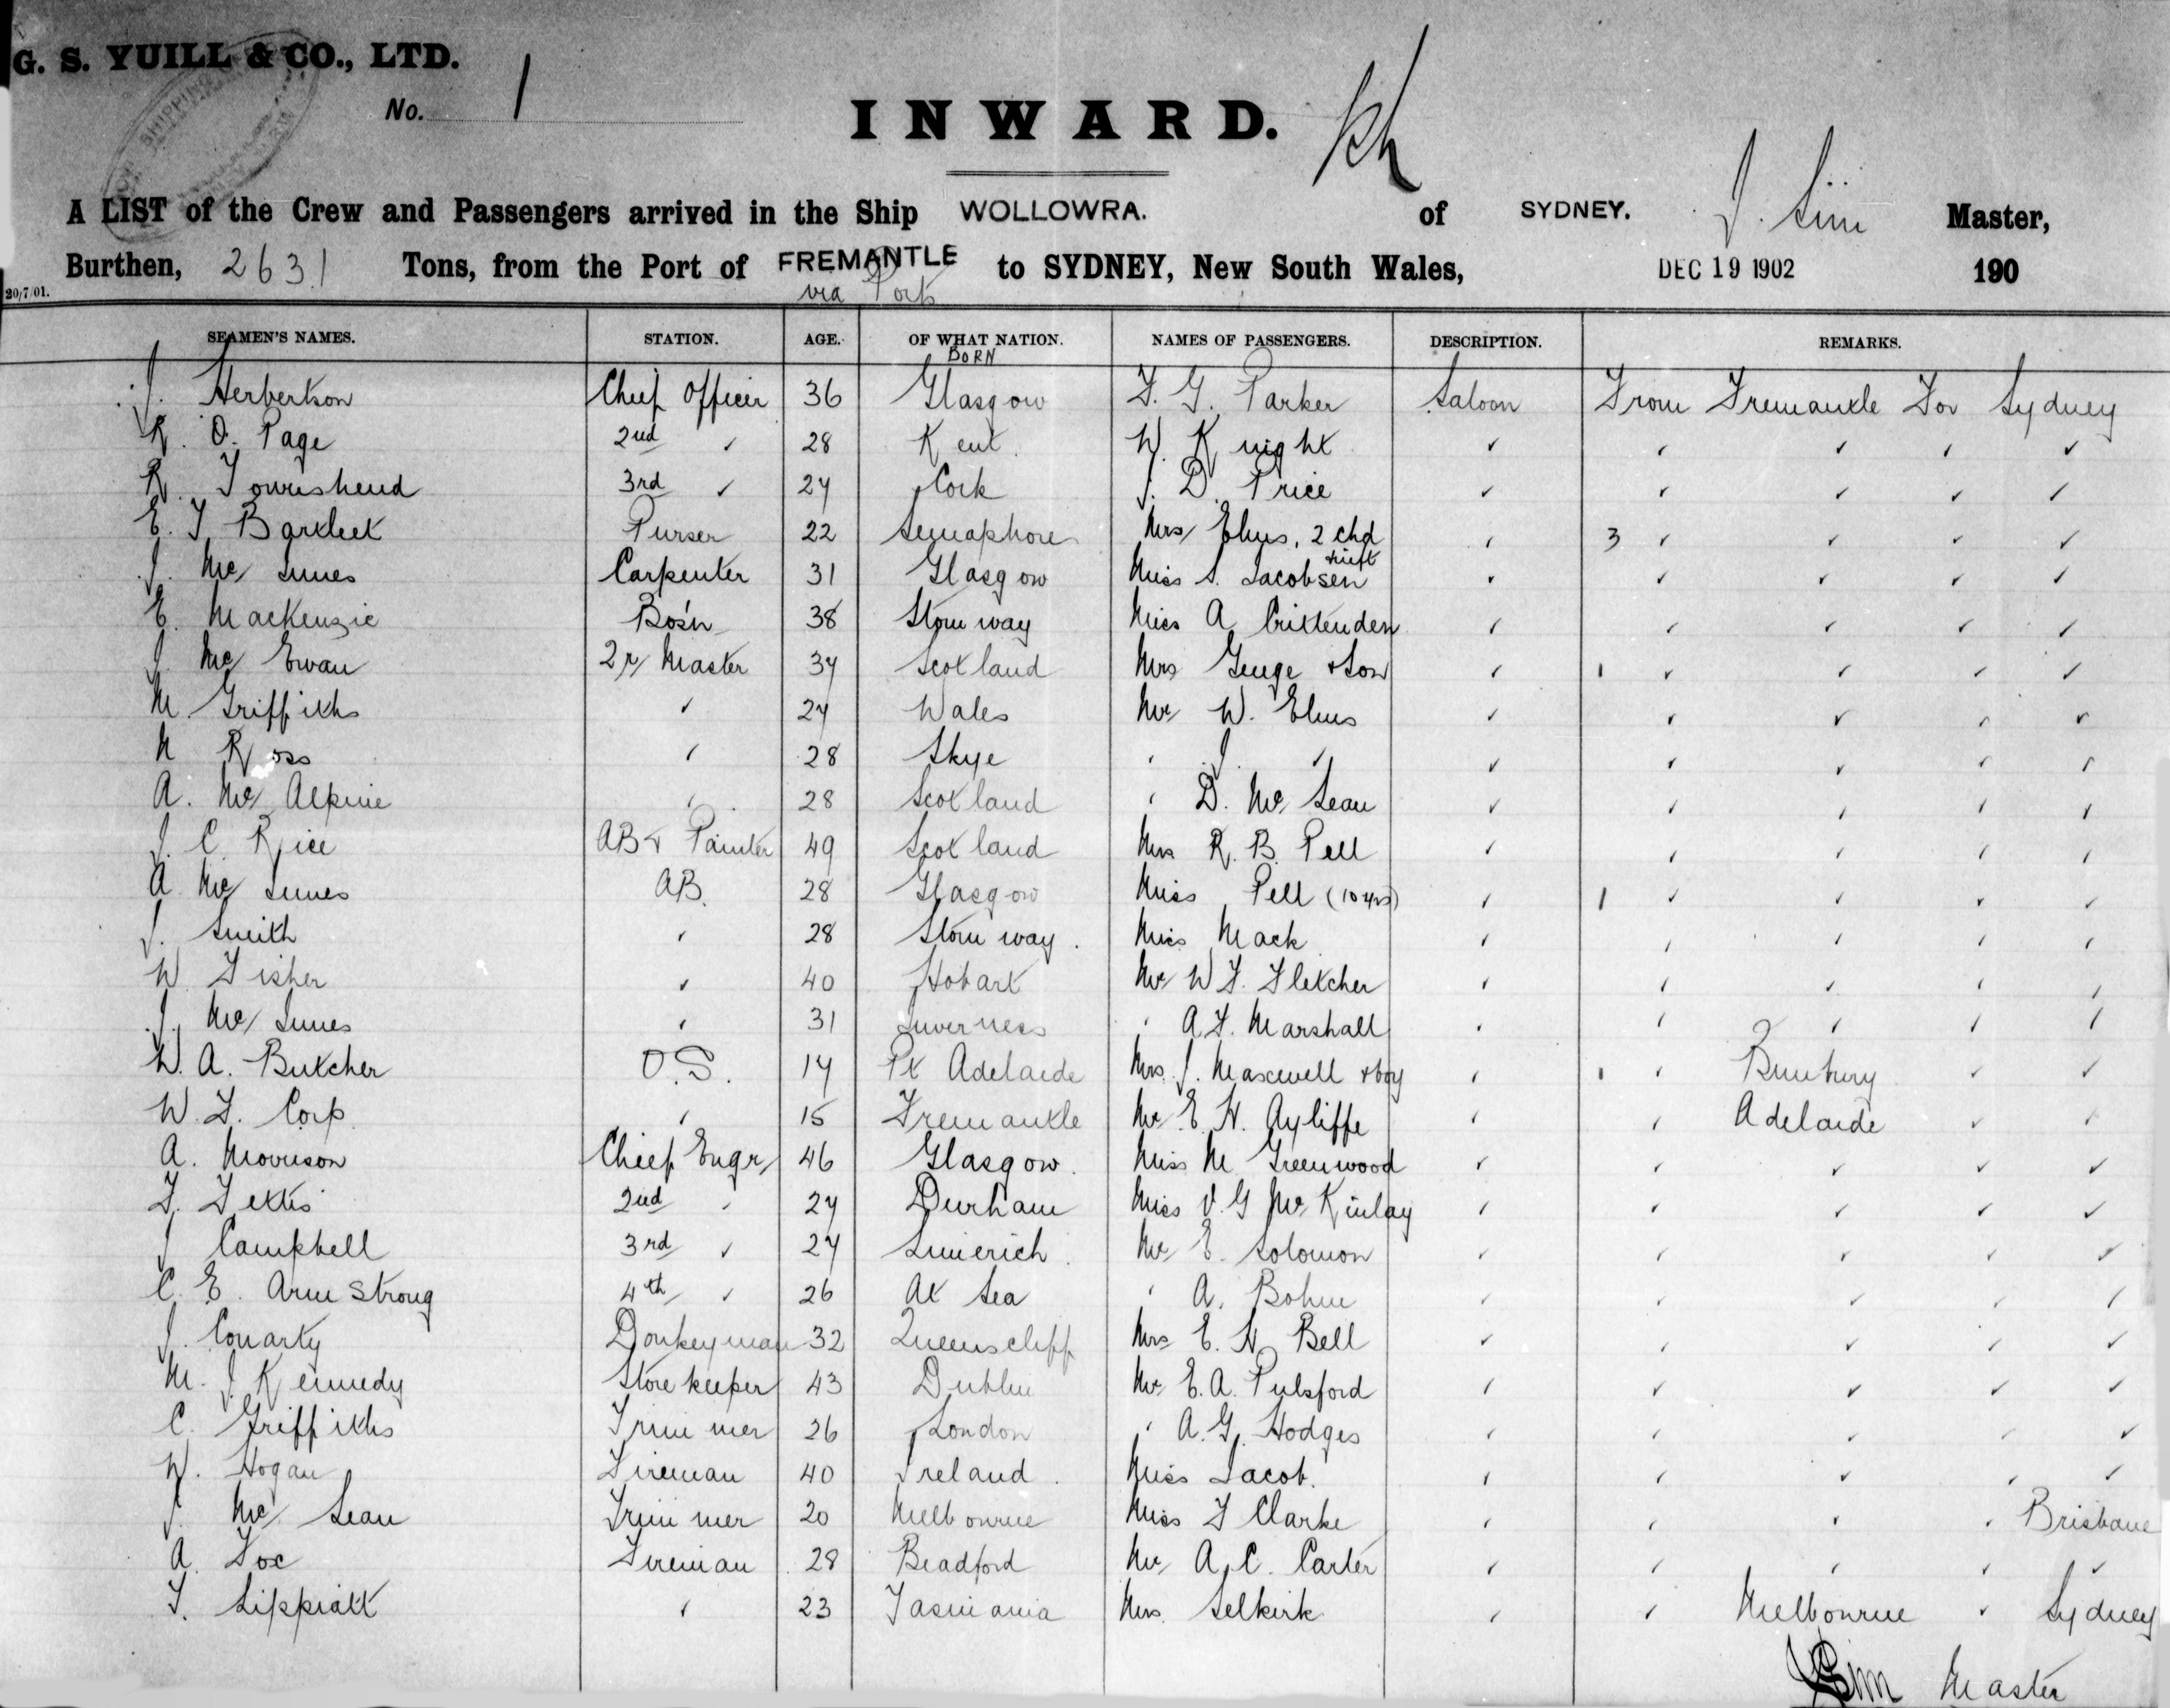 G. S. YUILL & CO., LTD.
No. 1
INWARD.
A LIST of the Crew and Passengers arrived in the Ship WOLLOWRA. of SYDNEY. J. Sim Master,
Burthen, 2631 Tons, from the Port of FREMANTLE to SYDNEY, New South Wales, DEC 19 1902 190
via Ports
20/7/01.
SEAMEN'S NAMES. STATION. AGE. OF WHAT NATION. NAMES OF PASSENGERS. DESCRIPTION. REMARKS.
BORN
J. Herbertson Chief Officer 36 Glasgow F. G. Parker Saloon From Fremantle For Sydney
R. O. Page 2nd " 28 Kent W. Knight " " " " "
R. Townshend 3rd " 24 Cork J. D. Price " " " " "
E. T Bartleet Purser 22 Semaphore Mrs Elms, 2 chd " 3 " " " "
J. McInnes Carpenter 31 Glasgow Miss S. Jacobsen " " " " "
E. MacKenzie Bos'n 38 Stornway Miss A Crittenden " " " " "
J. McEwan 2r Master 34 Scotland Mrs Genge & Son " 1 " " " "
M. Griffiths " 24 Wales Mr W. Elms " " " " "
N Ross " 28 Skye " J. " " " " " "
A. McAlpine " 28 Scotland " D. McLean " " " " "
J. C. Rice AB & Painter 49 Scotland Mrs R. B. Pell " " " " "
A McInnes AB. 28 Glasgow Miss Pell (10 yrs) " 1 " " " "
J. Smith " 28 Stornway. Miss Mack " " " " "
W Fisher " 40 Hobart Mr W F. Fletcher " " " " "
J. McInnes " 31 Inverness " A F. Marshall " " " " "
W. A. Butcher O.S. 14 Pt Adelaide Mrs J. Maxwell & boy " 1 " Bunbury " "
W. F. Corp " 15 Fremantle Mr E. H. Ayliffe " " Adelaide " "
A. Morrison Chief Engr 46 Glasgow. Miss M Greenwood " " " " "
F. Fettis 2nd " 24 Durham Miss V. G McKinlay " " " " "
J Campbell 3rd " 24 Limerick Mr E. Solomon " " " " "
C. E. Armstrong 4th " 26 At Sea " A. Bohm " " " " "
J. Conarty Donkeyman 32 Queenscliff Mrs E. H. Bell " " " " "
M. J. Kennedy Storekeeper 43 Dublin Mr E. A. Pulsford " " " " "
C. Griffiths Trimmer 26 London " A. G. Hodges " " " " "
W. Hogan Fireman 40 Ireland. Miss Jacob. " " " " "
J. McLean Trimmer 20 Melbourne Miss F Clarke " " " " Brisbane
A. Fox Fireman 28 Bradford Mr A. C. Carter " " " " "
T. Lippiatt " 23 Tasmania Mrs Selkirk " " Melbourne " Sydney
J Sim Master